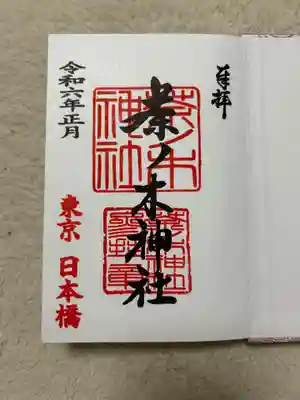 奉拝
茶ノ木神社
茶ノ木
神社
令和六年正月
東京 日本橋